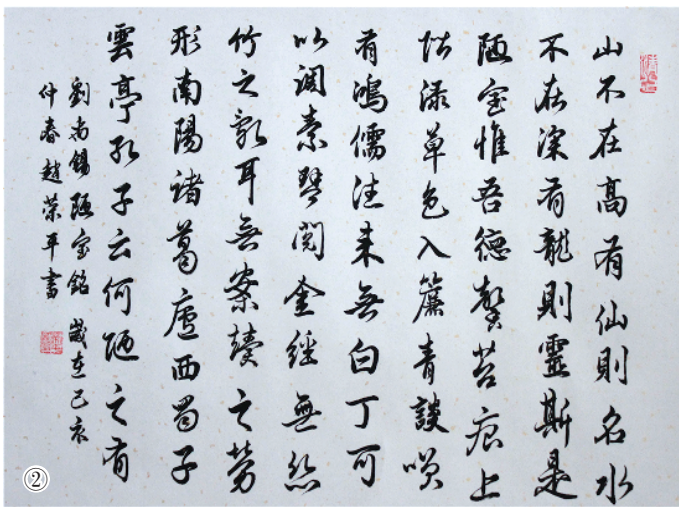 山不在高有仙則名水
不在深有龍則靈斯是
陋室惟吾德馨苔痕上
階渌草色入簾青談咲
有鴻儒往来無白丁可
以調素琴閱金經無絲
竹之亂耳無案牘之勞
形南陽諸葛廬西蜀子
雲亭孔子云何陋之有
劉禹錫陋室銘 歲在己亥
仲春趙榮平書
②